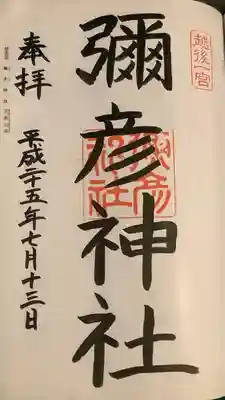 越後一宮
彌彦神社
彌彦神社
奉拝
平成二十五年七月十三日